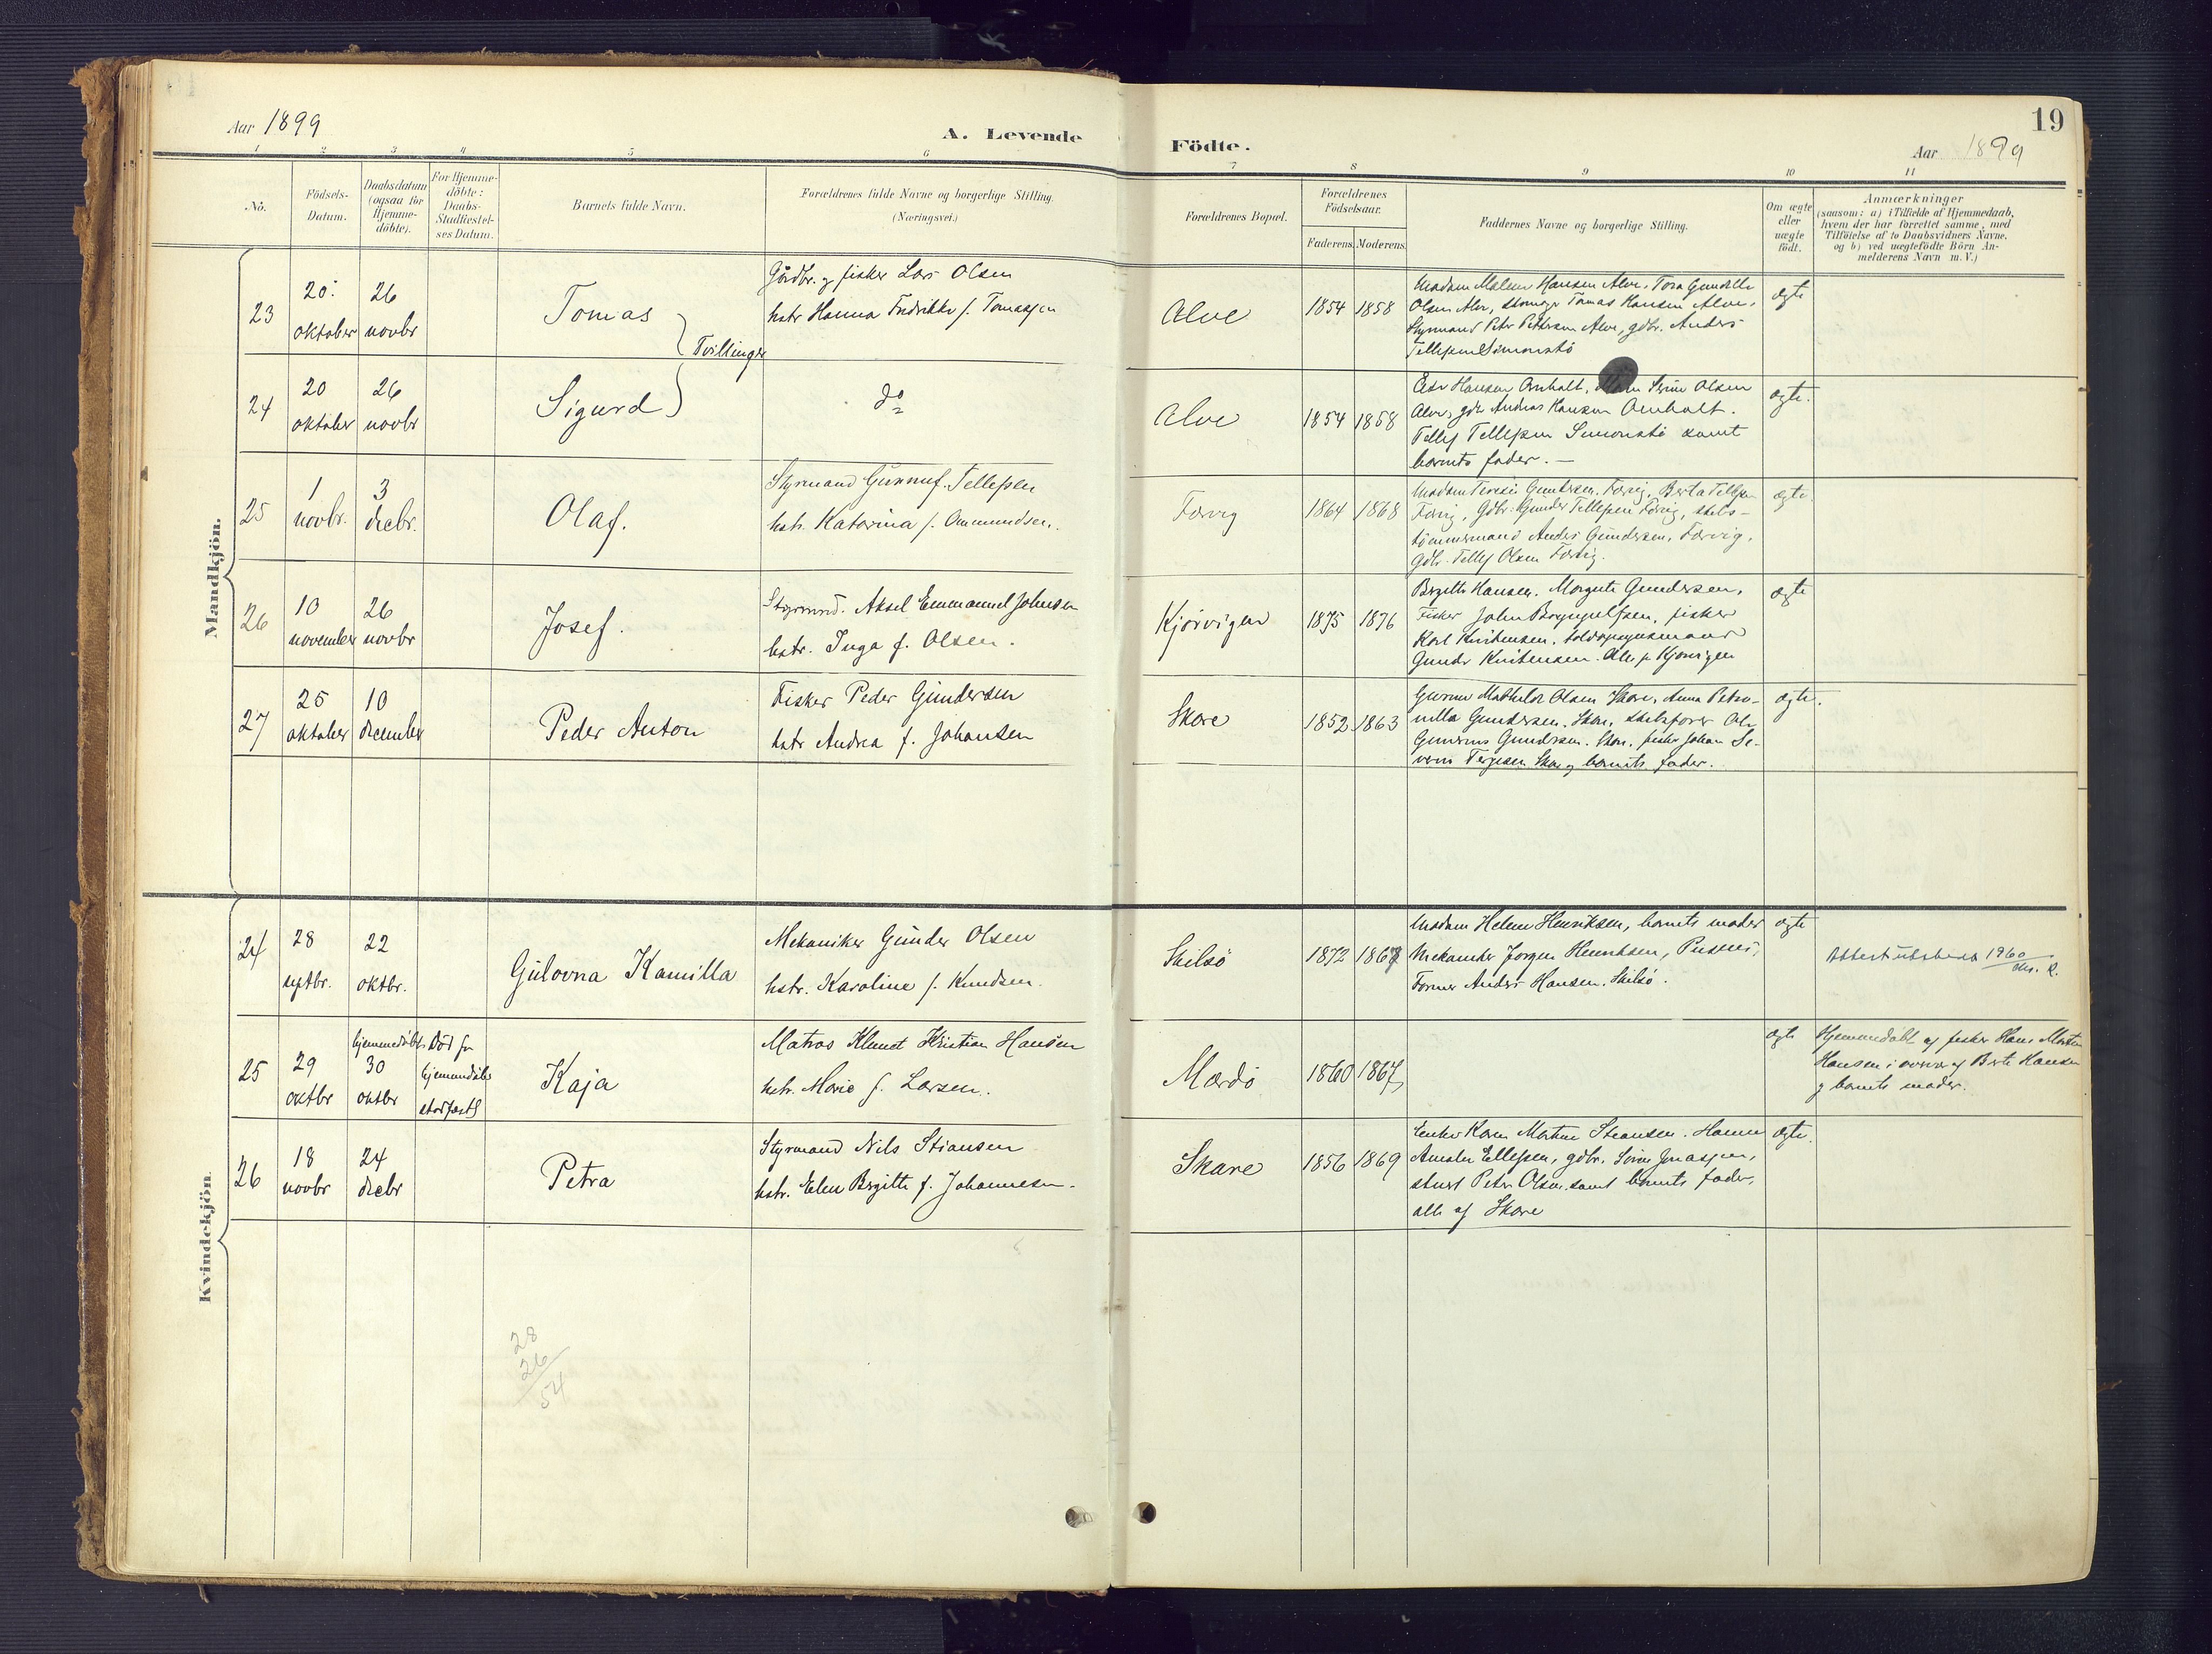 Aar 1899
A. Levende
Födte.
19
Aar 1899
1 2 3 4 5 6 7 8 9 10 11
No.
Födsels-
Datum.
Daabsdatum
(ogsaa for
Hjemme-
döbte).
For Hjemme-
döbte:
Daabs-
Stadfæstel-
ses Datum.
Barnets fulde Navn.
Forældrenes fulde Navne og borgerlige Stilling.
(Næringsvei.)
Forældrenes Bopæl.
Forældrenes
Födselsaar.
Faderens.
Moderens.
Faddernes Navne og borgerlige Stilling.
Om ægte
eller
uægte
födt.
Anmærkninger
(saasom: a) i Tilfælde af Hjemmedaab,
hvem der har forrettet samme, med
Tilföielse af to Daabsvidners Navne,
og b) ved uægtefödte Börn An-
melderens Navn m. V.)
Mandkjön.
23
20.
oktober
26
novbr
Tomas
Tvillinger
Gårdbr. og fisker Lars Olsen
hstr Hanna Fredrikke f. Tomassen
Alve
1854
1858
Madam Malene Hansen Alve, Tora Gundille
Olsen Alve, Tomas Hansen Alve,
Styrmand Peter Pettersen Alve, gdbr. Anders
Tellefsen Simonstö
ægte
24
20
oktober
26
novbr
Sigurd
do
Alve
1854
1858
Hansen Arnholt, Olsen
Alve, gdbr Andreas Hansen Arnholt.
Tellef Tellefsen Simonstö samt
barnets fader. —
ægte.
25
1
novbr.
3
decbr.
Olaf.
Styrmand Gunnuf Tellefsen
hstr. Katarina f. Ommundsen.
Færvig
1864
1868
Madam Terese Gundersen, Færvig, Berta Tellefsen
Færvig, Gdbr. Gunder Tellefsen Færvig, skibs-
tömmermand Anders Gundersen, Færvig,
Gdbr. Tellef Olsen Færvig.
ægte
26
10
november
26
novbr
Josef.
Styrmand. Aksel Emmanuel Johnsen
hstr. Inga f. Olsen.
Kjörvigen
1875
1876
Birgitte Hansen, Margrete Gundersen,
Fisker John Bryngulfsen, fisker
Karl Knibensen, toldopsynsmand
Gunder Knibensen. Alle fr Kjörvigen
ægte
27
25
oktober
10
december
Peder Anton
Fisker Peder Gundersen
hstr Andrea f. Johansen
Skare
1852
1863
Gurine Mathilde Olsen Skare, Anna Petro-
nella Gundersen, Skare, skibsförer Ole
Gunerius Gundersen, Skare, fisker Johan Se-
verin Terjesen Skare og barnets fader.
ægte.
Kvindekjön.
24
28
septbr.
22
oktbr.
Gulovna Kamilla
Mekaniker Gunder Olsen
hstr. Karoline f. Knudsen.
Skilsö
1872
1867
Madam Helene Henriksen, barnets moder
Mekaniker Jörgen Henriksen, Pusnes,
Former Anders Hansen, Skilsö.
ægte
Attest utstedt 1960
25
29
oktbr
hjemmedöbt
30
oktbr
Död för
hjemmedåb
stadfæst.
Kaja
Matros Klemet Kristian Hansen
hstr. Marie f. Larsen.
Mærdö
1860
1867
ægte
Hjemmedöbt af fisker Hans Morten
Hansen i overvær af Berte Hansen
og barnets moder.
26
18
novbr
24
decbr
Petra
Styrmand Nils Stiansen
hstr. Elen Birgitte f. Johannesen.
Skare
1856
1869
Enke Karen Martine Stiansen, Hanne
Amalie Ellefsen, gdbr. Sören Jonassen,
Peter Olsen samt barnets fader,
alle af Skare
ægte.
28
26
54